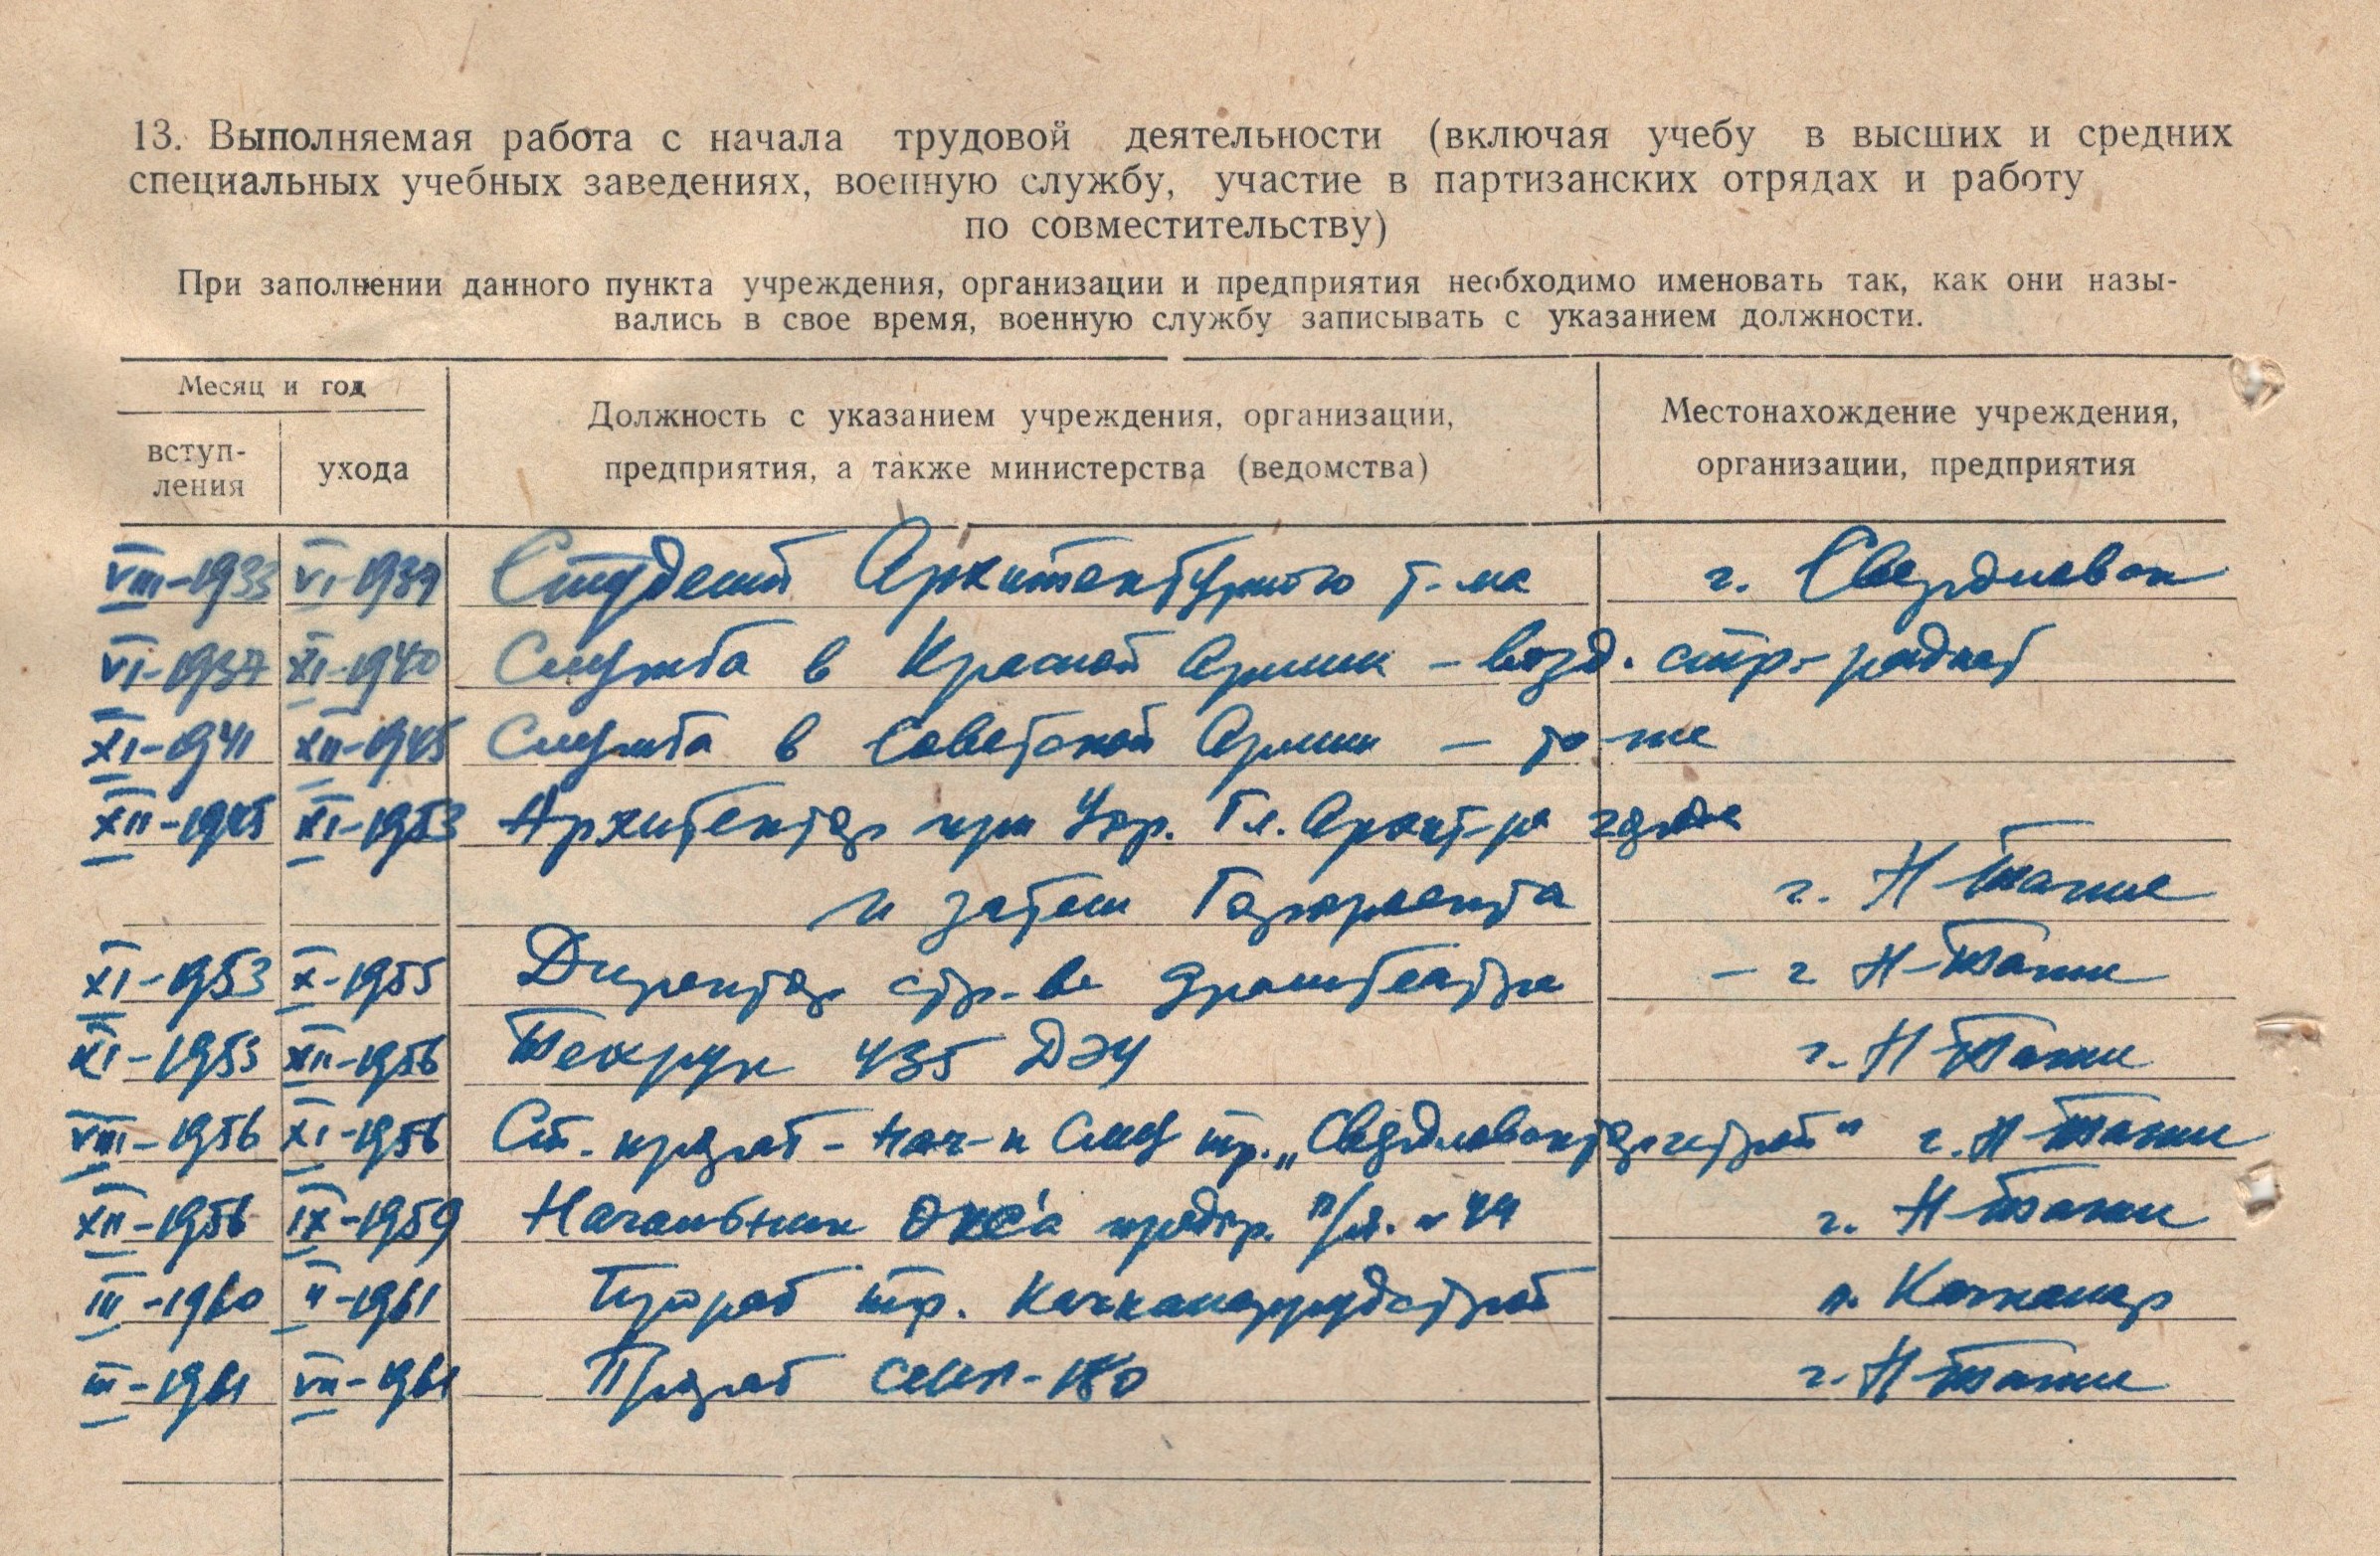 13. Выполняемая работа с начала трудовой деятельности (включая учебу в высших и средних
специальных учебных заведениях, военную службу, участие в партизанских отрядах и работу
по совместительству)
При заполнении данного пункта учреждения, организации и предприятия необходимо именовать так, как они назы-
вались в свое время, военную службу записывать с указанием должности.
Месяц и год
вступ-
ления
ухода
Должность с указанием учреждения, организации,
предприятия, а также министерства (ведомства)
Местонахождение учреждения,
организации, предприятия
VIII-1933 VI-1937 Студент Архитектурного т-ма г. Свердловск
VI-1937 XI-1940 Служба в Красной Армии - возд. стр-
XI-1941 XII-1945 Служба в Советской Армии - то-же
XII-1945 XI-1953 Архитектор при Упр. Гл. Архит-ра города
и затем Горпроекта г. Н-Тагил
XI-1953 X-1955 Директор стр-ва драмтеатра - г Н-Тагил
XI-1955 XII-1956 Техрук 435 ДЭУ г. Н-Тагил
VIII-1956 XI-1956 Ст. прораб - нач-к СМУ тр. „Свердловскдорстрой" г. Н-Тагил
XII-1956 IX-1959 Начальник ОКС'а предпр. п/я. № 44 г. Н-Тагил
III-1960 II-1961 Прораб тр. Качканаррудстрой п. Качканар
III-1961 VII-1961 Прораб г. Н-Тагил